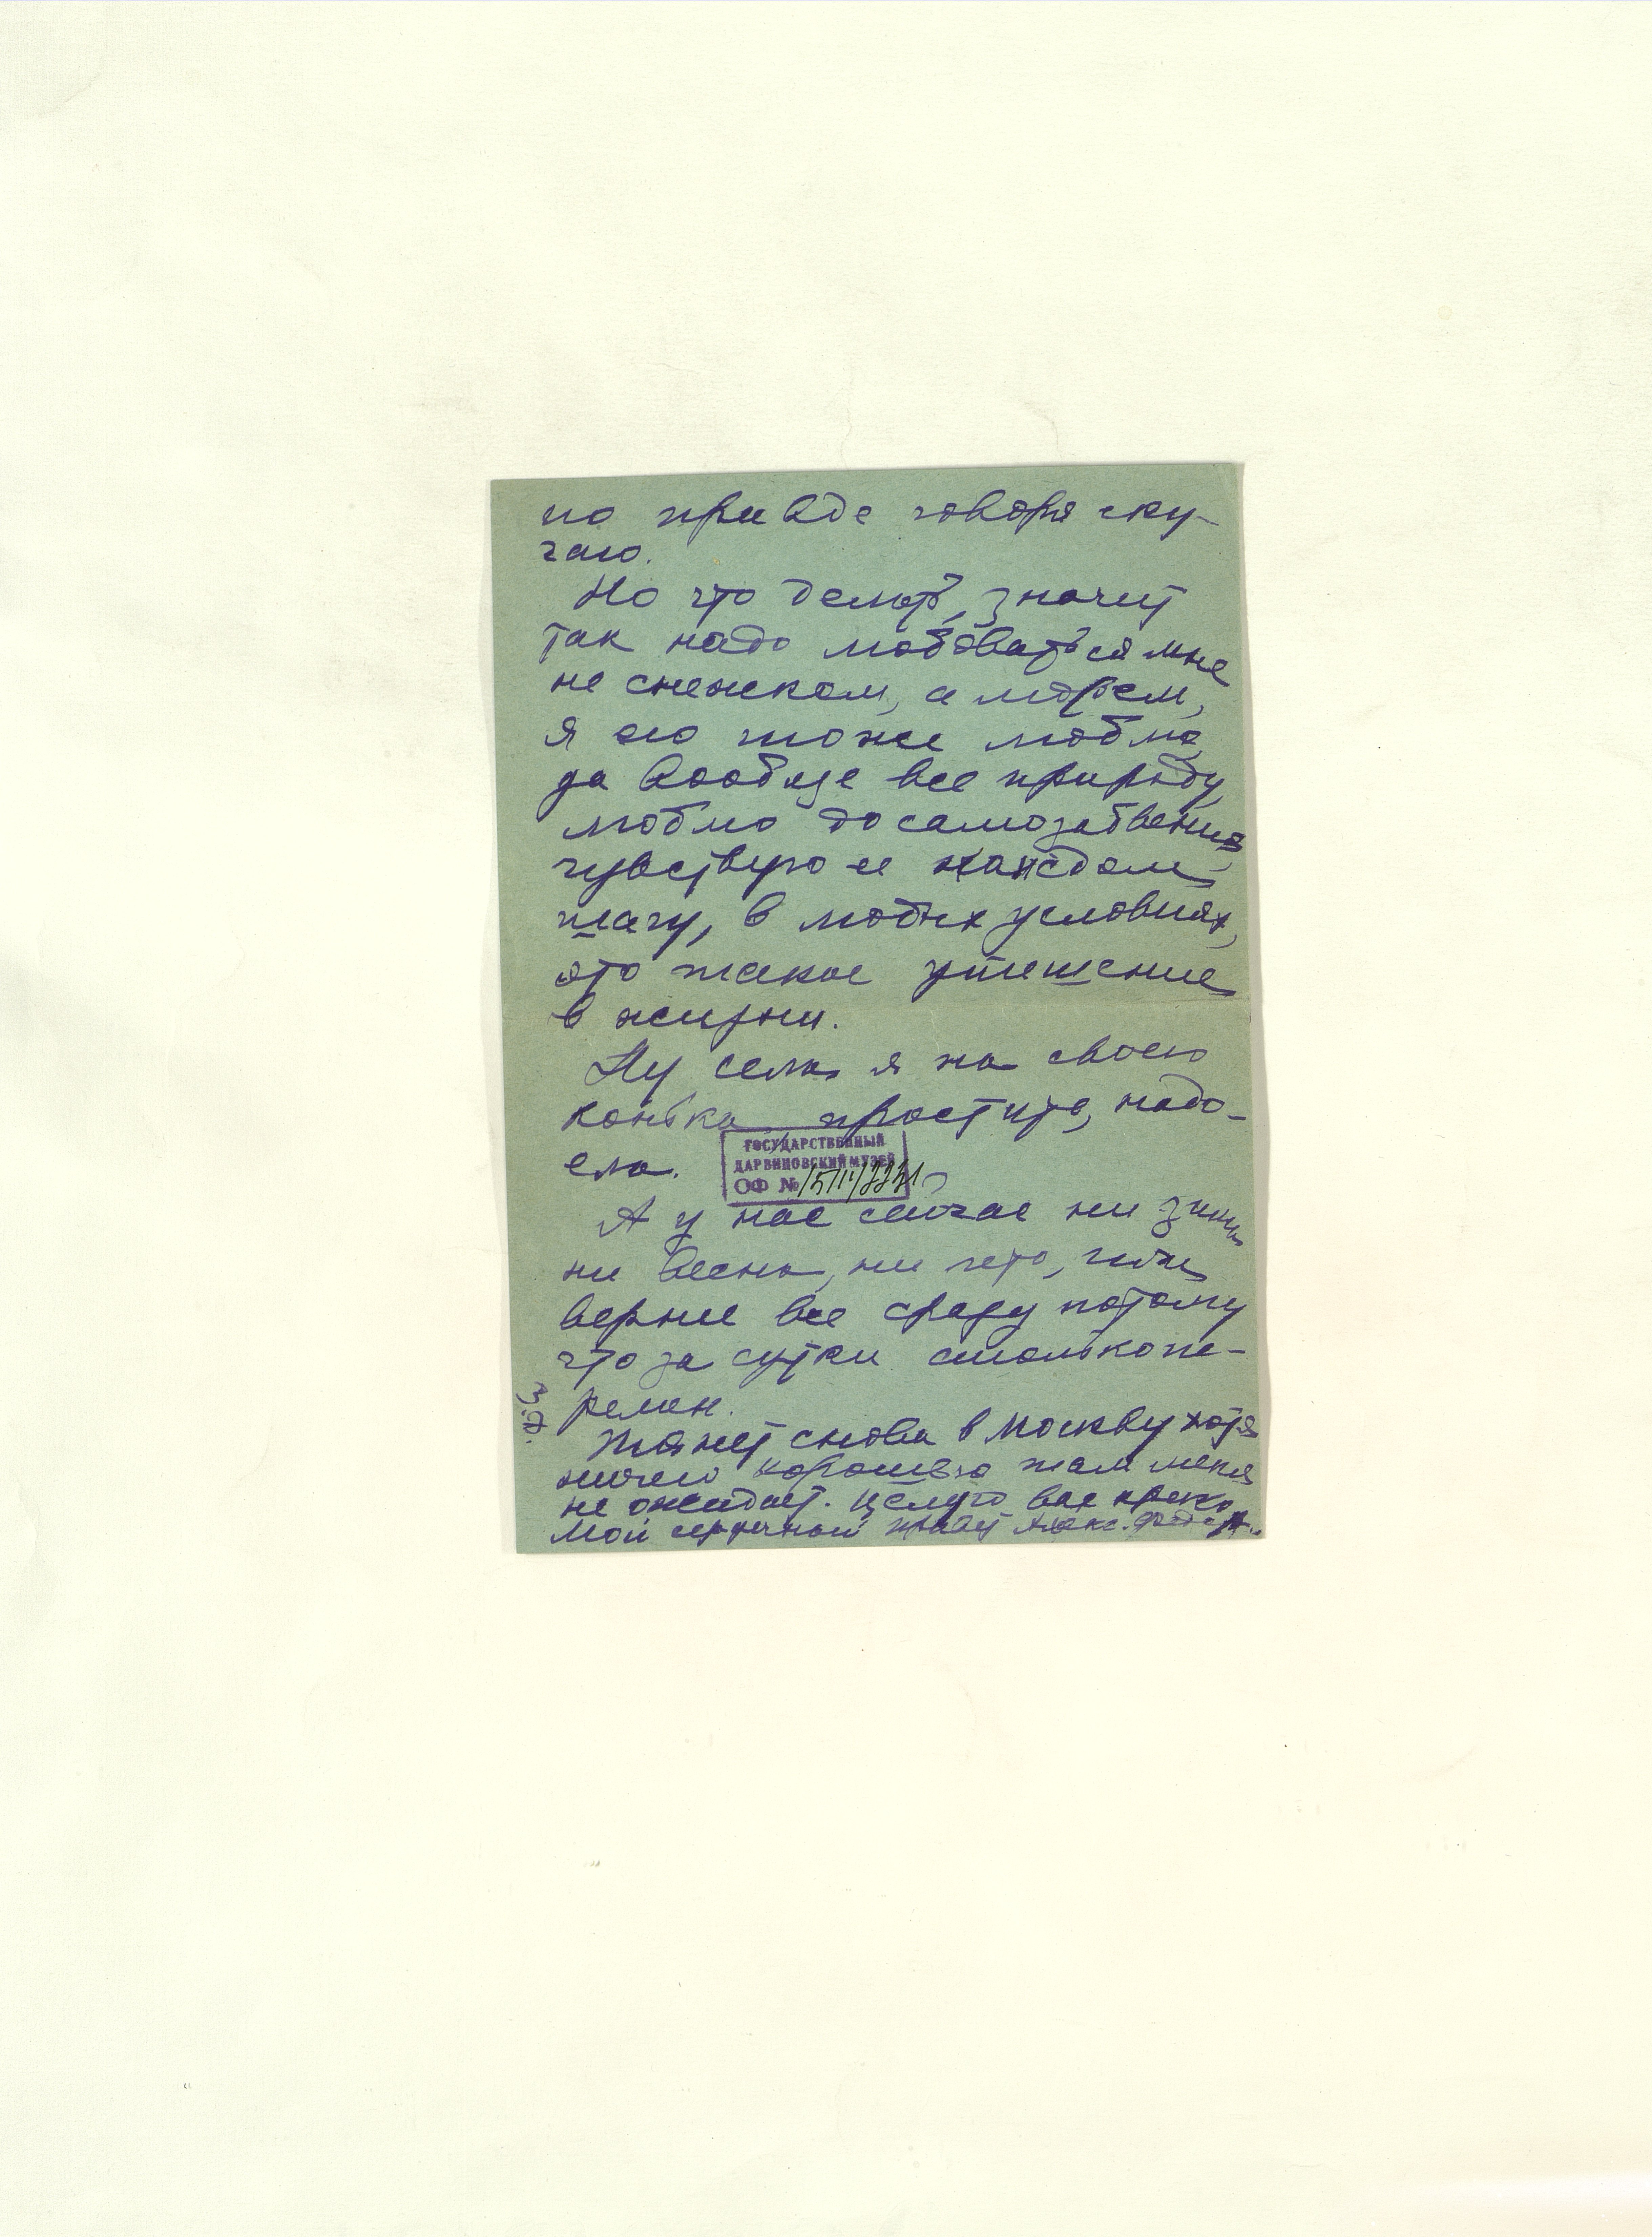 по правде говоря ску-
чаю.
Но что делать, значит
так надо любоваться мне
не снежком, а морем,
я его тоже люблю,
да вообще все природу
люблю до самозабвения,
чувствую ее каждом
шагу, в любых условиях,
это такое утешение
в жизни.
Ну села я на своего
конька, простите, надо-
ела.
ГОСУДАРСТВЕННЫЙ
ДАРВИНОВСКИЙ МУЗЕЙ
ОФ №
А у нас сейчас ни зимы
ни весны, ни лето, или
вернее все сразу потому
что за сутки столько пе-
ремен.
Тянет снова в Москву хотя
ничего хорошего там меня
не ожидает. Целую вас крепко
Мой сердечный привет Алекс. Федор.